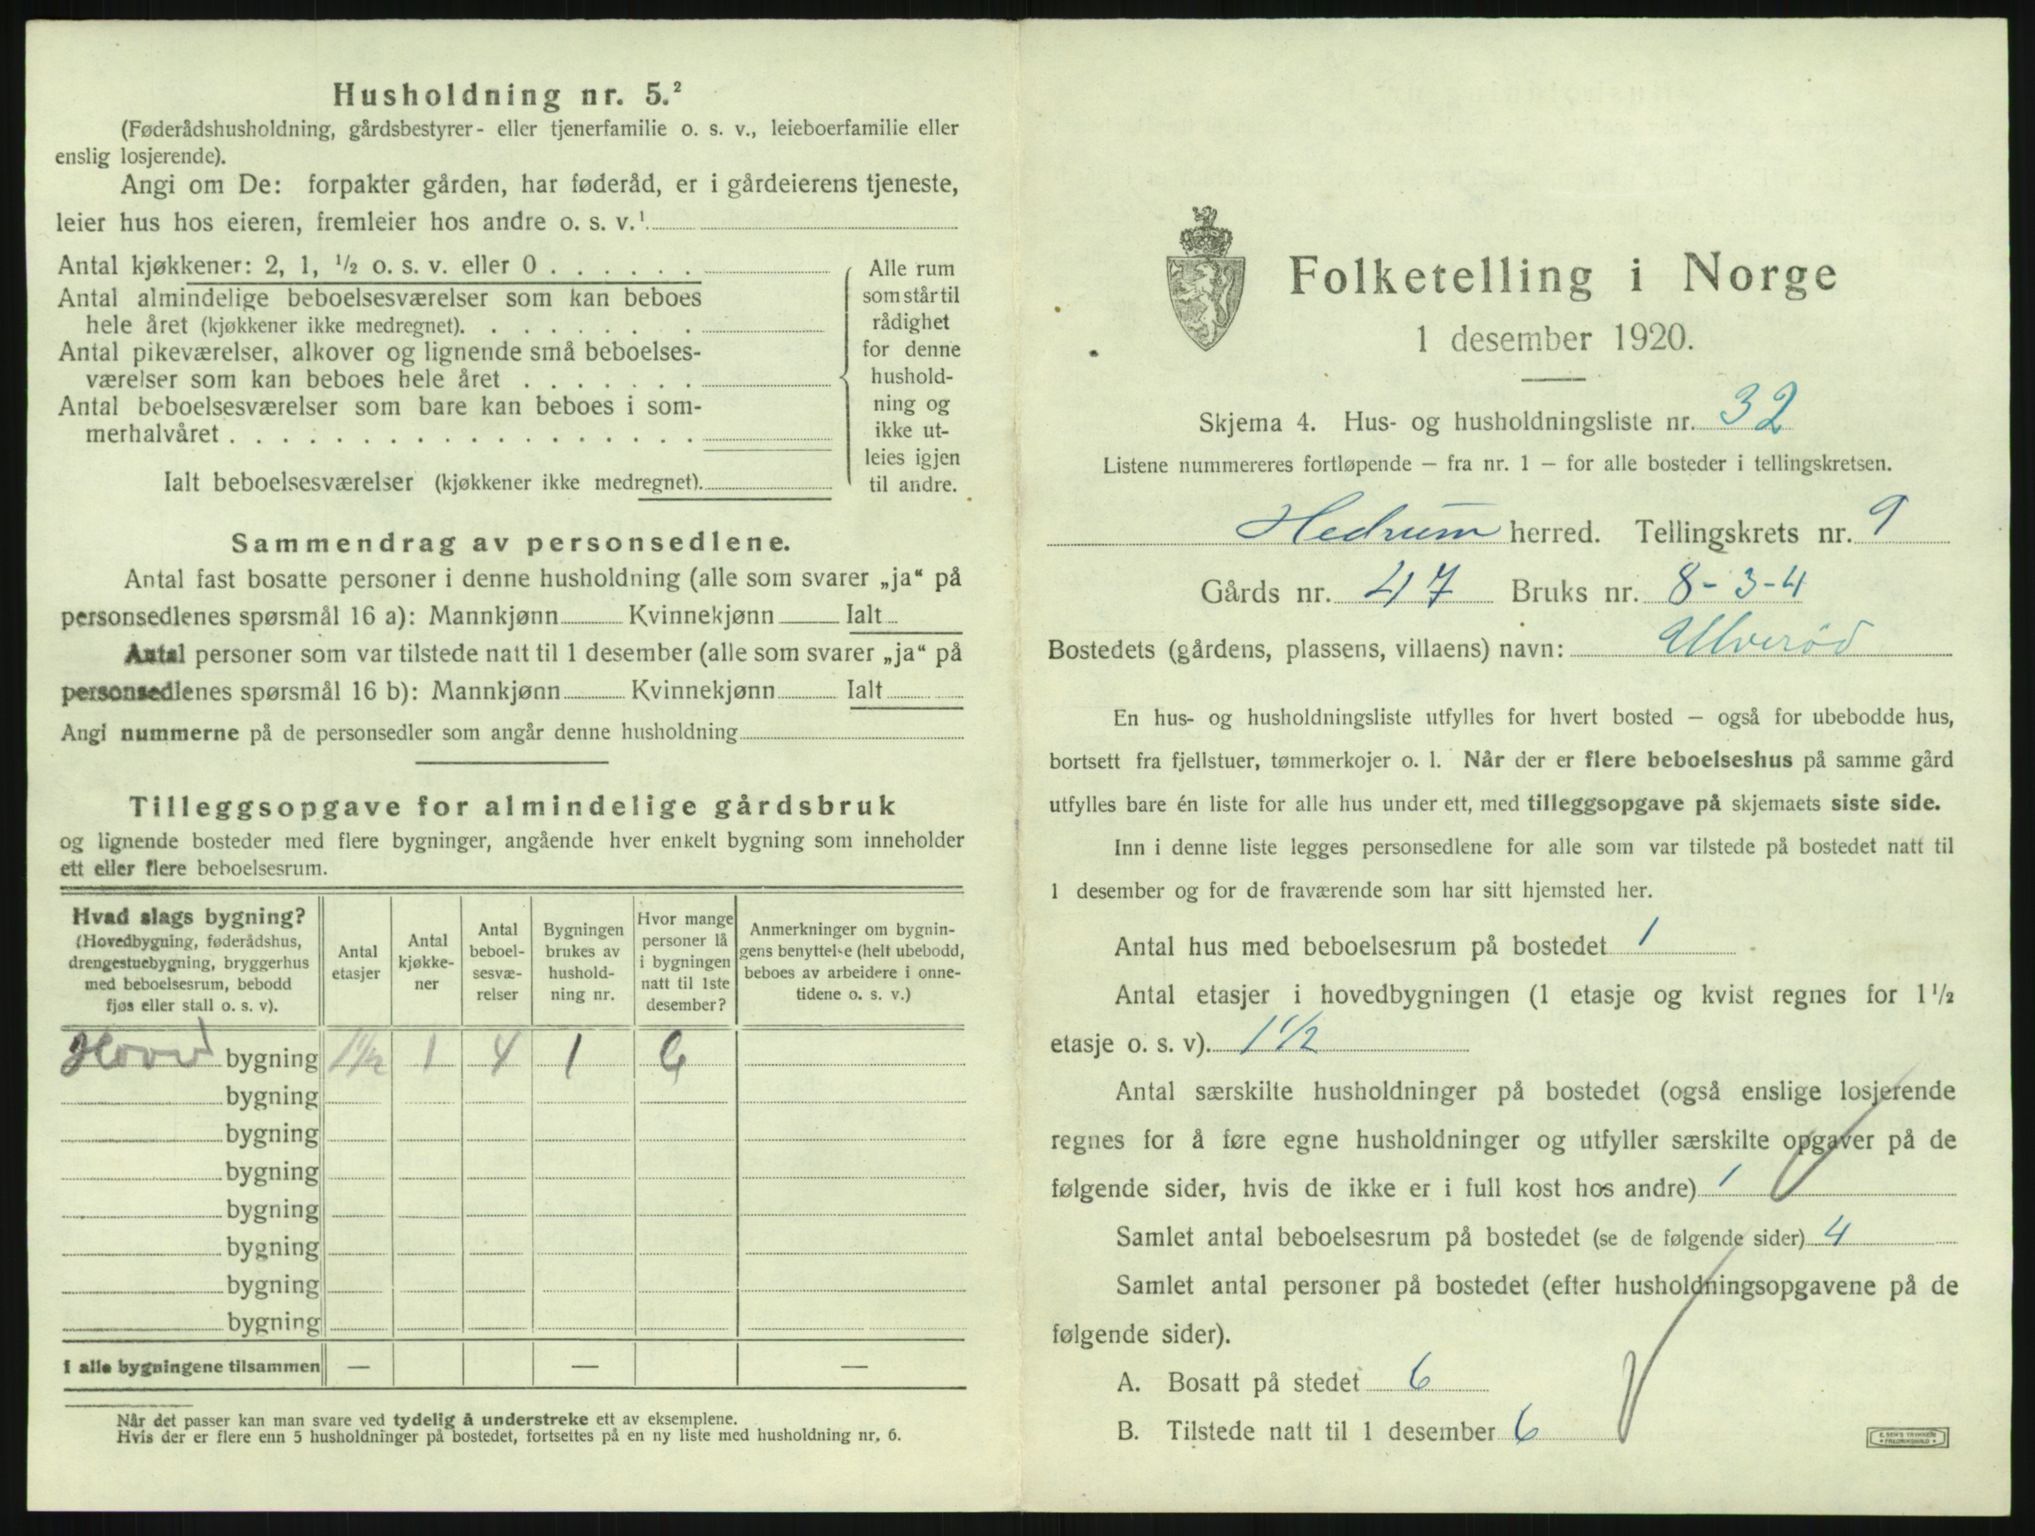 Husholdning nr. 5.²
(Føderådshusholdning, gårdsbestyrer- eller tjenerfamilie o. s. v., leieboerfamilie eller
enslig losjerende).
Angi om De: forpakter gården, har føderåd, er i gårdeierens tjeneste,
leier hus hos eieren, fremleier hos andre o. s. v.¹
Antal kjøkkener: 2, 1, ½ o. s. v. eller 0 . . . . . .
Antal almindelige beboelsesværelser som kan beboes
hele året (kjøkkener ikke medregnet). . . . . . . .
Antal pikeværelser, alkover og lignende små beboelses-
værelser som kan beboes hele året . . . . . . .
Antal beboelsesværelser som bare kan beboes i som-
merhalvåret . . . . . . . . . . . . . . . . . .
Ialt beboelsesværelser (kjøkkener ikke medregnet).
Alle rum
som står til
rådighet
for denne
hushold-
ning og
ikke ut-
leies igjen
til andre.
Sammendrag av personsedlene.
Antal fast bosatte personer i denne husholdning (alle som svarer „ja“ på
personsedlenes spørsmål 16 a): Mannkjønn Kvinnekjønn Ialt
Antal personer som var tilstede natt til 1 desember (alle som svarer „ja“ på
personsedlenes spørsmål 16 b): Mannkjønn Kvinnekjønn Ialt
Angi nummerne på de personsedler som angår denne husholdning
Tilleggsopgave for almindelige gårdsbruk
og lignende bosteder med flere bygninger, angående hver enkelt bygning som inneholder
ett eller flere beboelsesrum.
Hvad slags bygning?
(Hovedbygning, føderådshus,
drengestuebygning, bryggerhus
med beboelsesrum, bebodd
fjøs eller stall o. s. v).
Antal
etasjer
Antal
kjøkke-
ner
Antal
beboel-
sesvæ-
relser
Bygningen
brukes av
hushold-
ning nr.
Hvor mange
personer lå
i bygningen
natt til 1ste
desember?
Anmerkninger om bygnin-
gens benyttelse (helt ubebodd,
beboes av arbeidere i onne-
tidene o. s. v.)
Hoved bygning 1½ 1 4 1 6
bygning
bygning
bygning
bygning
bygning
bygning
bygning
I alle bygningene tilsammen — — —
Når det passer kan man svare ved tydelig å understreke ett av eksemplene.
Hvis der er flere enn 5 husholdninger på bostedet, fortsettes på en ny liste med husholdning nr. 6.
Folketelling i Norge
1 desember 1920.
Skjema 4. Hus- og husholdningsliste nr. 32
Listene nummereres fortløpende – fra nr. 1 – for alle bosteder i tellingskretsen.
Hedrum herred. Tellingskrets nr. 9
Gårds nr. 47 Bruks nr. 8-3-4
Bostedets (gårdens, plassens, villaens) navn: Ulverød
En hus- og husholdningsliste utfylles for hvert bosted – også for ubebodde hus,
bortsett fra fjellstuer, tømmerkojer o. l. Når der er flere beboelseshus på samme gård
utfylles bare én liste for alle hus under ett, med tilleggsopgave på skjemaets siste side.
Inn i denne liste legges personsedlene for alle som var tilstede på bostedet natt til
1 desember og for de fraværende som har sitt hjemsted her.
Antal hus med beboelsesrum på bostedet 1
Antal etasjer i hovedbygningen (1 etasje og kvist regnes for 1½
etasje o. s. v). 1½
Antal særskilte husholdninger på bostedet (også enslige losjerende
regnes for å føre egne husholdninger og utfyller særskilte opgaver på de
følgende sider, hvis de ikke er i full kost hos andre) 1
Samlet antal beboelsesrum på bostedet (se de følgende sider) 4
Samlet antal personer på bostedet (efter husholdningsopgavene på de
følgende sider).
A. Bosatt på stedet 6
B. Tilstede natt til 1 desember 6